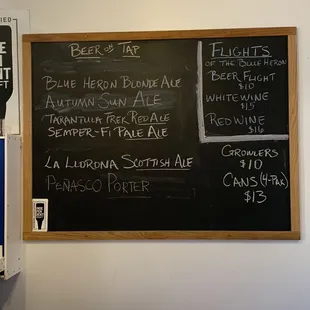 BEER ON TAP
BLUE HERON BLONDE ALE
AUTUMN SUN ALE
TARANTULA TREK RED ALE
SEMPER-FI PALE ALE
LA LLORONA SCOTTISH ALE
PEÑASCO PORTER
FLIGHTS
OF THE BLUE HERON
BEER FLIGHT
$10
WHITE WINE
$15
RED WINE
$16
GROWLERS
$10
CANS (4-PAK)
$13